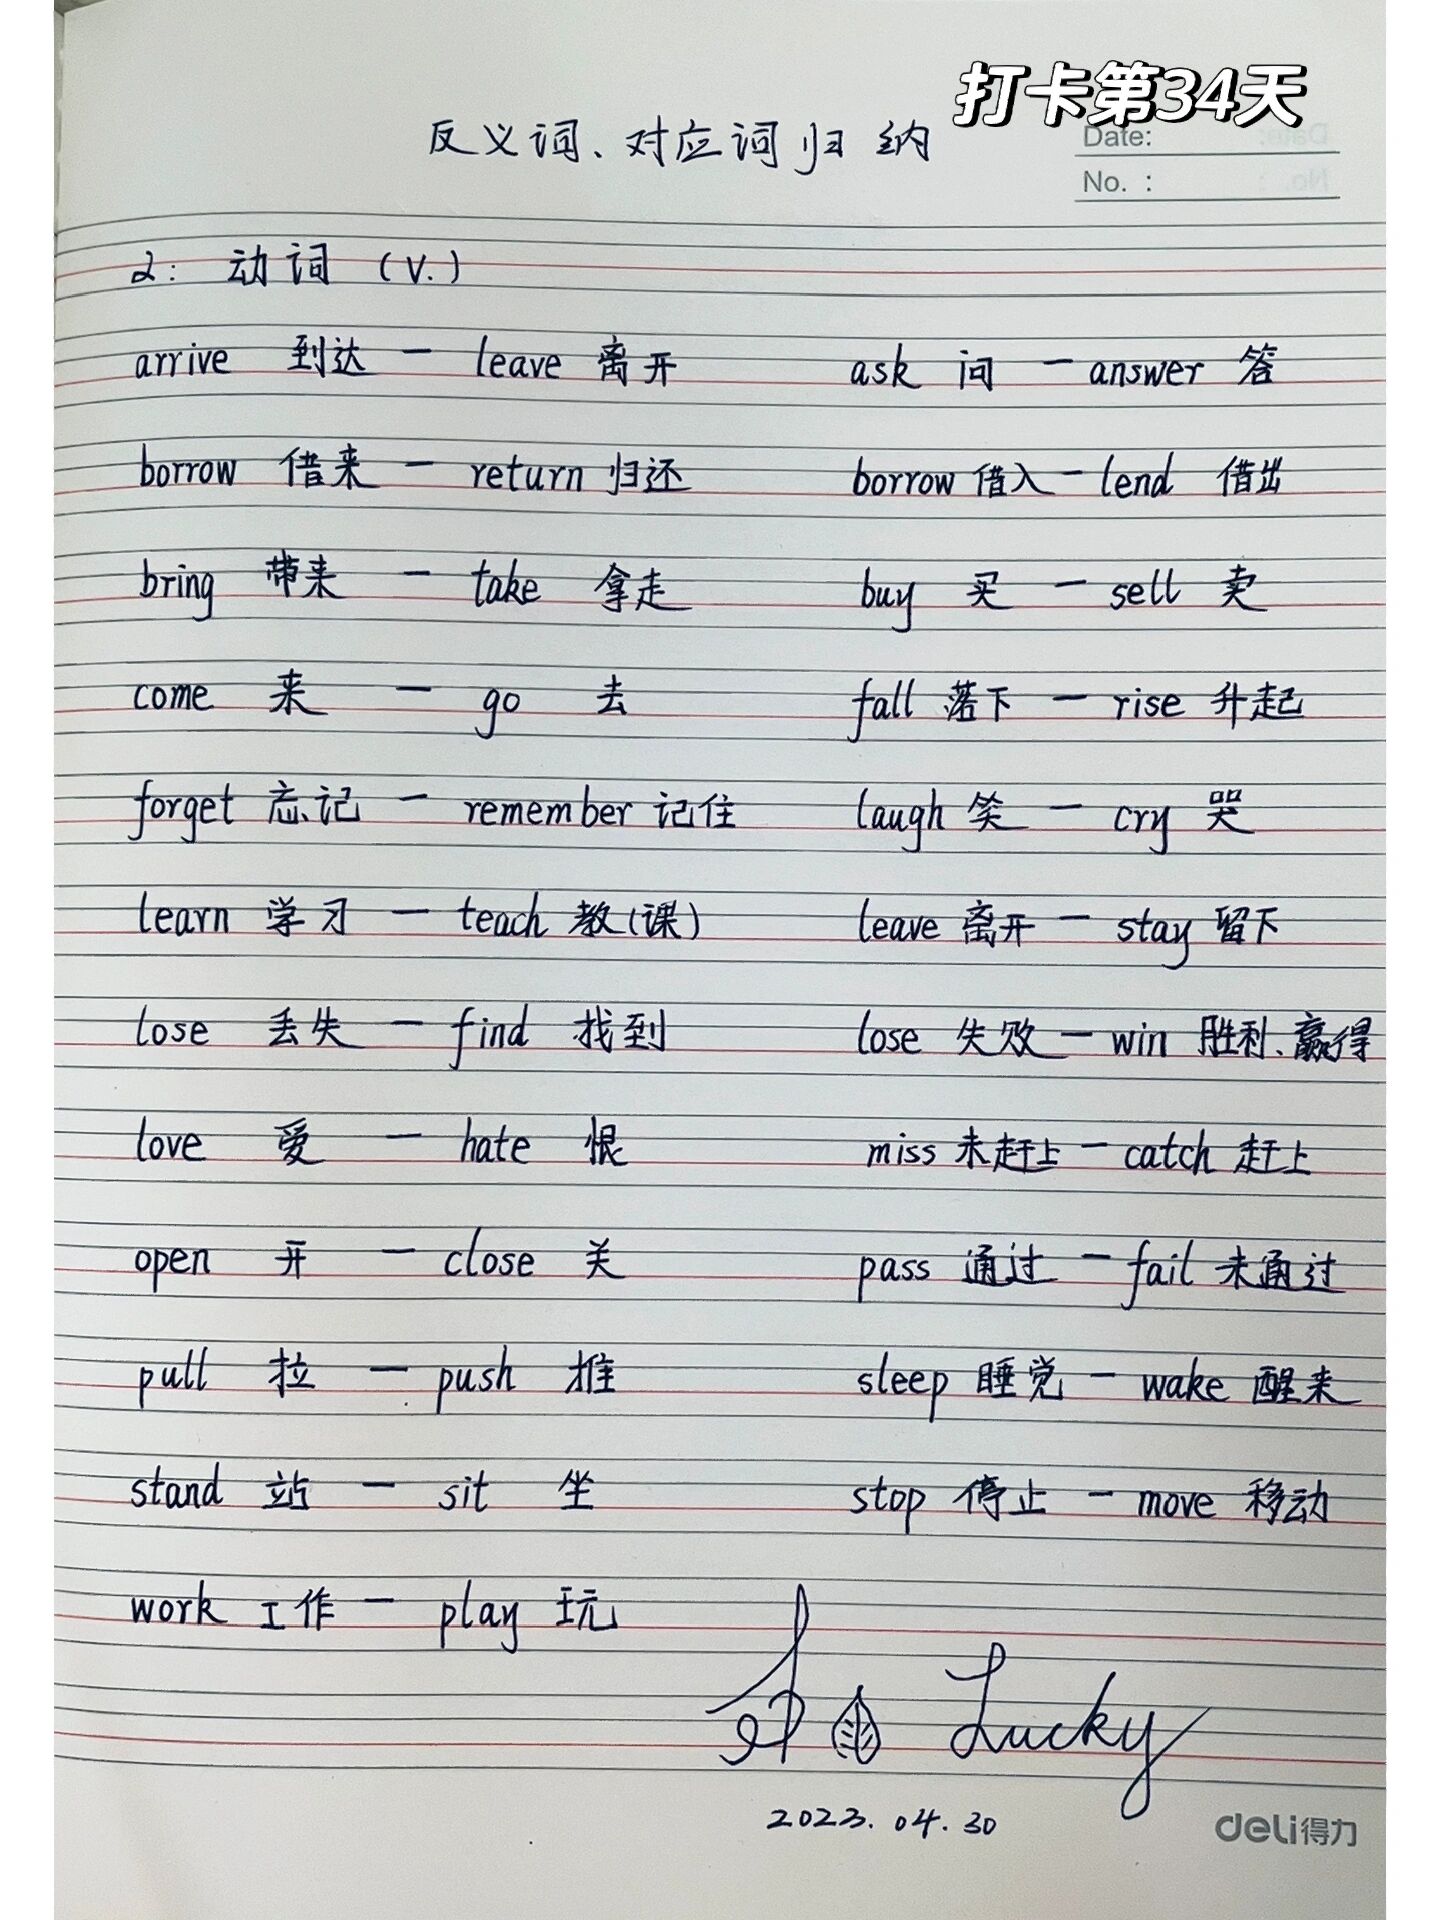 打卡第34天
反义词、对应词归纳
Date:
No. :
2: 动词 (V.)
arrive 到达 — leave 离开 ask 问 — answer 答
borrow 借来 — return 归还 borrow 借入 — lend 借出
bring 带来 — take 拿走 buy 买 — sell 卖
come 来 — go 去 fall 落下 — rise 升起
forget 忘记 — remember 记住 laugh 笑 — cry 哭
learn 学习 — teach 教(课) leave 离开 — stay 留下
lose 丢失 — find 找到 lose 失败 — win 胜利、赢得
love 爱 — hate 恨 miss 未赶上 — catch 赶上
open 开 — close 关 pass 通过 — fail 未通过
pull 拉 — push 推 sleep 睡觉 — wake 醒来
stand 站 — sit 坐 stop 停止 — move 移动
work 工作 — play 玩
Lucky
2023.04.30
deli得力